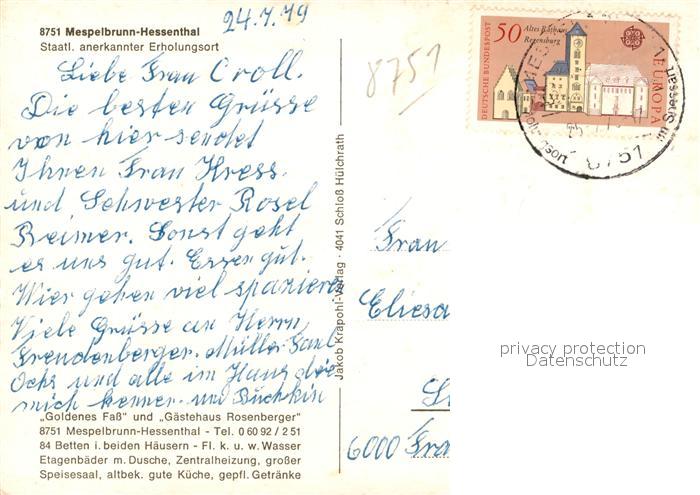 24.7.79
8751 Mespelbrunn-Hessenthal
Staatl. anerkannter Erholungsort
Liebe Frau Croll.
Die besten Grüsse
von hier sendet
Ihnen Frau Kress
und Schwester Rosel
Reimer. Sonst geht
es uns gut. Essen gut.
Wier gehen viel spazieren
Viele Grüsse an Herrn
Freudenberger. Müller Paul
Ochs und alle im Haus die
mich kennen. und
„Goldenes Faß" und „Gästehaus Rosenberger"
8751 Mespelbrunn-Hessenthal - Tel. 0 60 92 / 2 51
84 Betten i. beiden Häusern - Fl. k. u. w. Wasser
Etagenbäder m. Dusche, Zentralheizung, großer
Speisesaal, altbek. gute Küche, gepfl. Getränke
Jakob Krapohl-Verlag · 4041 Schloß Hülchrath
8751
DEUTSCHE BUNDESPOST
50
Altes Rathaus
Regensburg
EUROPA
im Spessart
8751
Frau
Eliesa
6000 Fra
privacy protection
Datenschutz